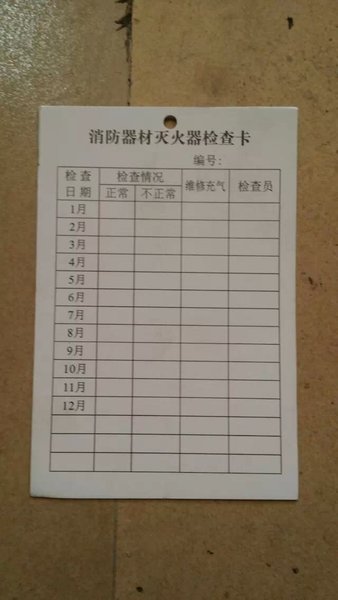 消防器材灭火器检查卡
编号:
检查日期 检查情况 维修充气 检查员
正常 不正常
1月
2月
3月
4月
5月
6月
7月
8月
9月
10月
11月
12月